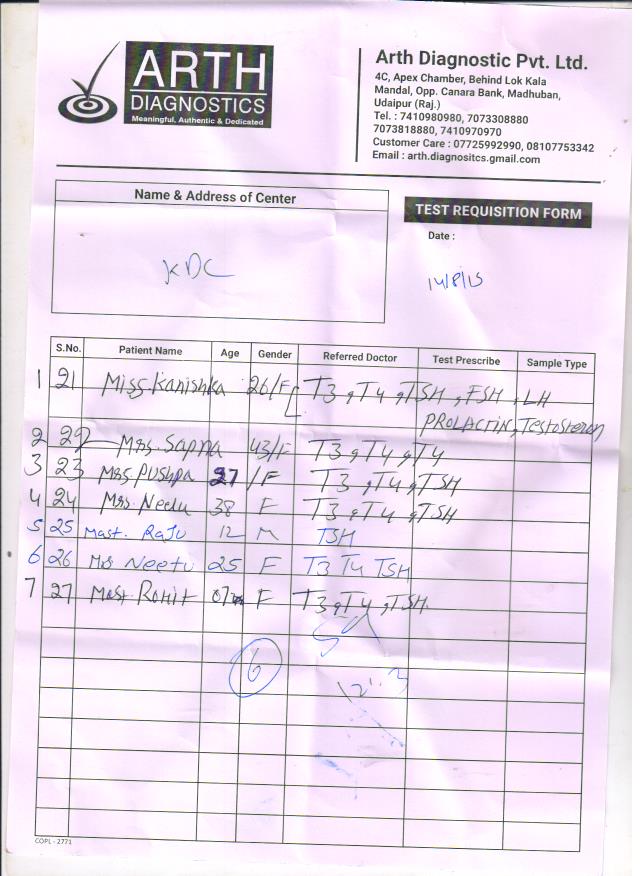 ARTH
DIAGNOSTICS
Meaningful, Authentic & Dedicated
Arth Diagnostic Pvt. Ltd.
4C, Apex Chamber, Behind Lok Kala
Mandal, Opp. Canara Bank, Madhuban,
Udaipur (Raj.)
Tel. : 7410980980, 7073308880
7073818880, 7410970970
Customer Care : 07725992990, 08107753342
Email : arth.diagnositcs.gmail.com
Name & Address of Center
KDC
TEST REQUISITION FORM
Date :
14/8/15
S.No. Patient Name Age Gender Referred Doctor Test Prescribe Sample Type
1 21 Miss. Kanishka 26/F T3, T4, TSH, FSH, LH
PROLACTIN, Testosteron
2 22 Mrs. Sapna 43/F T3, T4, T4
3 23 Mrs Pushpa 27/F T3, T4, TSH
4 24 Mrs. Neelu 38 F T3, T4, TSH
5 25 Mast. Raju 12 M TSH
6 26 Mrs Neetu 25 F T3 T4 TSH
7 27 Mast. Rohit F T3, T4, TSH
6
COPL - 2771